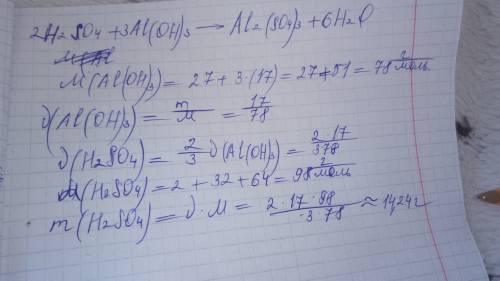 2H₂SO₄ + 3Al(OH)₃ → Al₂(SO₄)₃ + 6H₂O
M(Al(OH)₃) = 27 + 3·(17) = 27 + 51 = 78 г/моль
ν(Al(OH)₃) = m/M = 17/78
ν(H₂SO₄) = 2/3 ν(Al(OH)₃) = 2·17/3 78
M(H₂SO₄) = 2 + 32 + 64 = 98 г/моль
m(H₂SO₄) = ν·M = 2·17·98/3·78 ≈ 14,24 г